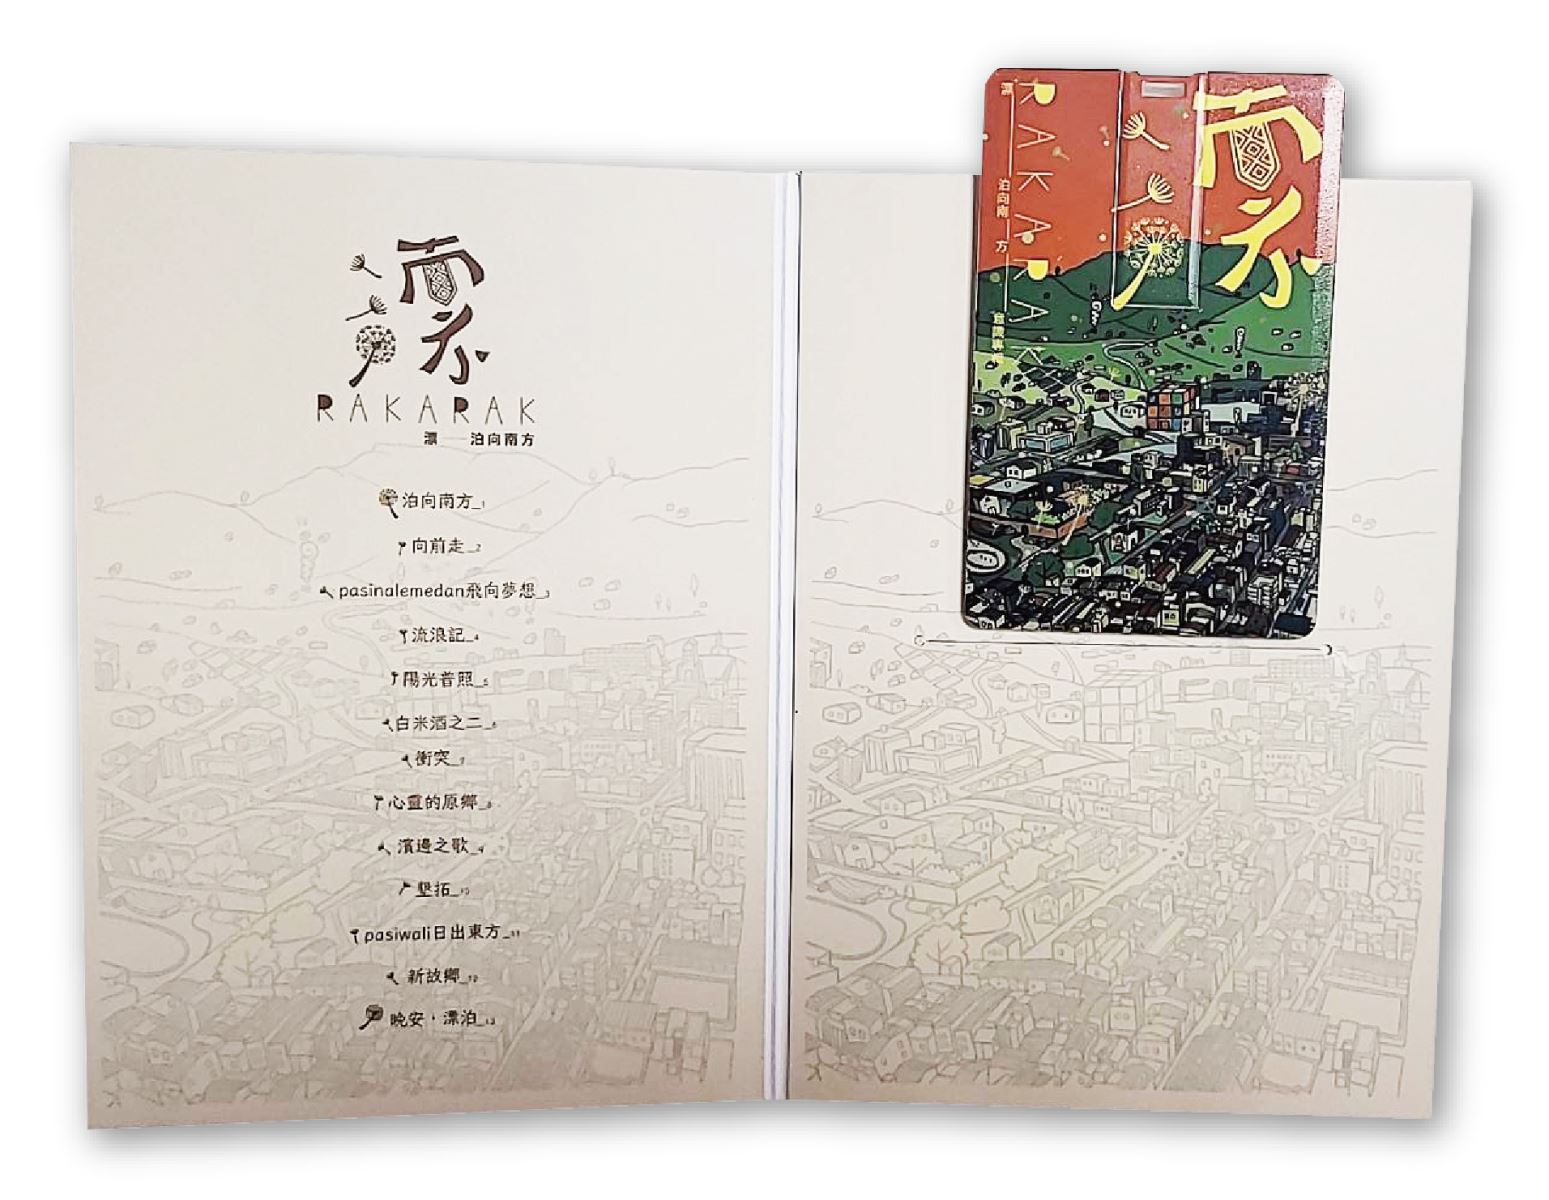 漂
RAKARAK
漂——泊向南方
泊向南方_1
向前走_2
pasinalemedan飛向夢想_3
流浪記_4
陽光普照_5
白米酒之二_6
衝突_7
心靈的原鄉_8
濱邊之歌_9
墾拓_10
pasiwali日出東方_11
新故鄉_12
晚安，漂泊_13
漂
RAKARAK
漂——泊向南方